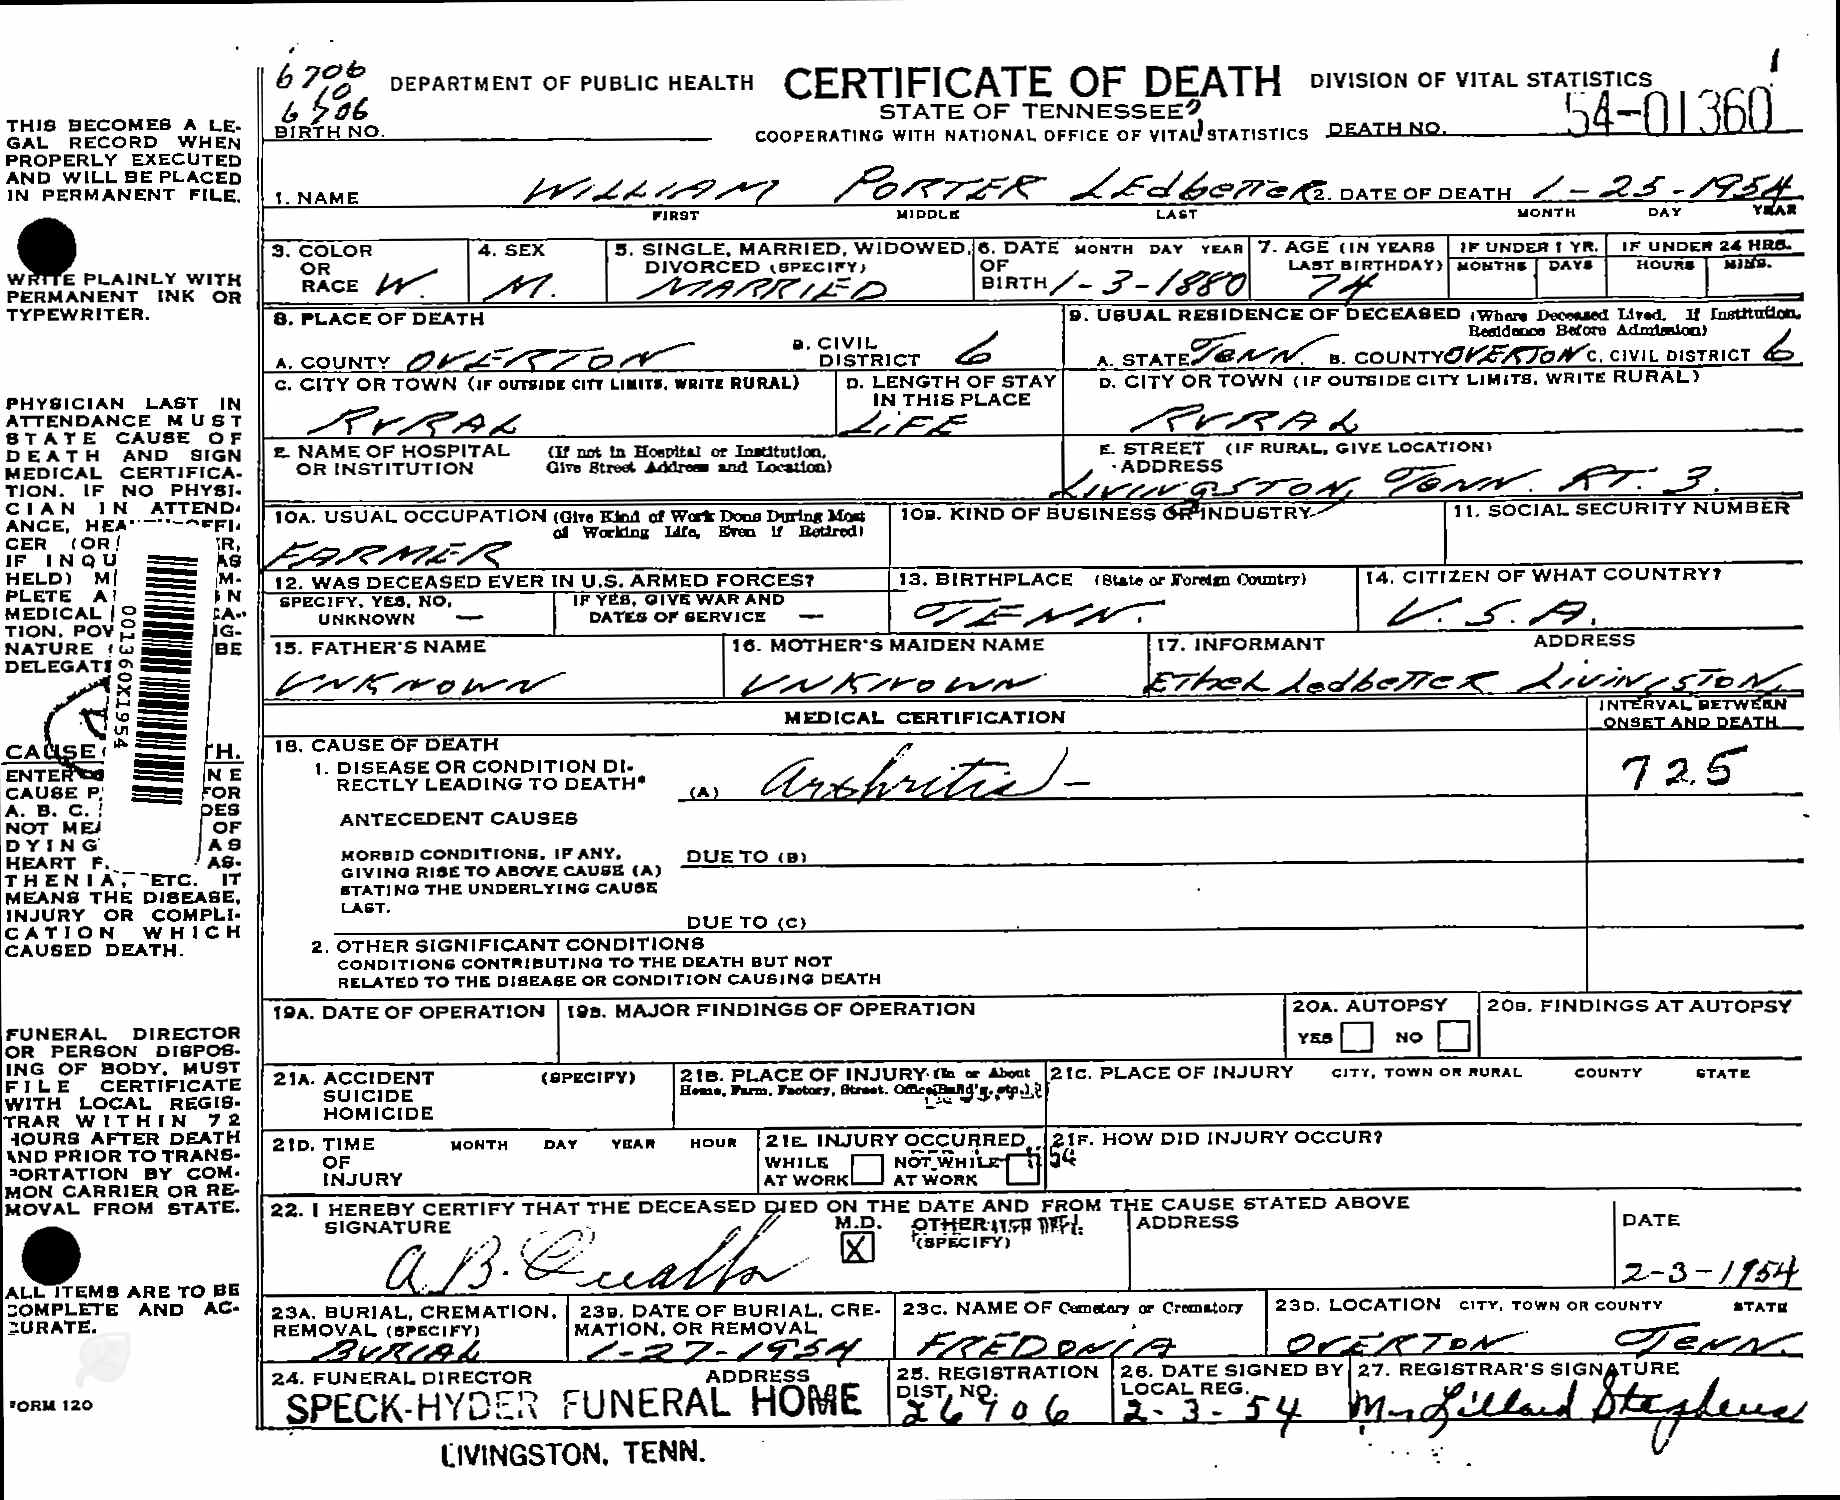 6706
10
6506
DEPARTMENT OF PUBLIC HEALTH CERTIFICATE OF DEATH DIVISION OF VITAL STATISTICS
STATE OF TENNESSEE
BIRTH NO. COOPERATING WITH NATIONAL OFFICE OF VITAL STATISTICS DEATH NO. 54-01360
1. NAME WILLIAM PORTER LEdbETTER 2. DATE OF DEATH 1-25-1954
FIRST MIDDLE LAST MONTH DAY YEAR
3. COLOR OR RACE W. 4. SEX M. 5. SINGLE, MARRIED, WIDOWED, DIVORCED (SPECIFY) MARRIED 6. DATE OF BIRTH MONTH DAY YEAR 1-3-1880 7. AGE (IN YEARS LAST BIRTHDAY) 74 IF UNDER 1 YR. MONTHS DAYS IF UNDER 24 HRS. HOURS MINS.
8. PLACE OF DEATH
A. COUNTY OVERTON B. CIVIL DISTRICT 6
9. USUAL RESIDENCE OF DECEASED (Where Deceased Lived. If Institution, Residence Before Admission)
A. STATE TENN. B. COUNTY OVERTON C. CIVIL DISTRICT 6
C. CITY OR TOWN (IF OUTSIDE CITY LIMITS, WRITE RURAL) RURAL D. LENGTH OF STAY IN THIS PLACE LIFE
D. CITY OR TOWN (IF OUTSIDE CITY LIMITS, WRITE RURAL) RURAL
E. NAME OF HOSPITAL OR INSTITUTION (If not in Hospital or Institution, Give Street Address and Location)
E. STREET ADDRESS (IF RURAL, GIVE LOCATION) LIVINGSTON, TENN. RT. 3.
10A. USUAL OCCUPATION (Give Kind of Work Done During Most of Working Life, Even if Retired) FARMER
10B. KIND OF BUSINESS OR INDUSTRY
11. SOCIAL SECURITY NUMBER
12. WAS DECEASED EVER IN U.S. ARMED FORCES?
SPECIFY, YES, NO, UNKNOWN — IF YES, GIVE WAR AND DATES OF SERVICE —
13. BIRTHPLACE (State or Foreign Country) TENN.
14. CITIZEN OF WHAT COUNTRY? U.S.A.
15. FATHER'S NAME UNKNOWN
16. MOTHER'S MAIDEN NAME UNKNOWN
17. INFORMANT ADDRESS EThEL LedbETTER LIVINGSTON,
MEDICAL CERTIFICATION INTERVAL BETWEEN ONSET AND DEATH
18. CAUSE OF DEATH
1. DISEASE OR CONDITION DIRECTLY LEADING TO DEATH* (A) Arthritis - 725
ANTECEDENT CAUSES
MORBID CONDITIONS, IF ANY, GIVING RISE TO ABOVE CAUSE (A) STATING THE UNDERLYING CAUSE LAST.
DUE TO (B)
DUE TO (C)
2. OTHER SIGNIFICANT CONDITIONS
CONDITIONS CONTRIBUTING TO THE DEATH BUT NOT
RELATED TO THE DISEASE OR CONDITION CAUSING DEATH
19A. DATE OF OPERATION 19B. MAJOR FINDINGS OF OPERATION 20A. AUTOPSY YES NO 20B. FINDINGS AT AUTOPSY
21A. ACCIDENT SUICIDE HOMICIDE (SPECIFY)
21B. PLACE OF INJURY (In or About Home, Farm, Factory, Street, Office Build'g, etc.)
21C. PLACE OF INJURY CITY, TOWN OR RURAL COUNTY STATE
21D. TIME OF INJURY MONTH DAY YEAR HOUR
21E. INJURY OCCURRED WHILE AT WORK NOT WHILE AT WORK
21F. HOW DID INJURY OCCUR?
54
22. I HEREBY CERTIFY THAT THE DECEASED DIED ON THE DATE AND FROM THE CAUSE STATED ABOVE
SIGNATURE A.B. Qualls M.D. X OTHER (SPECIFY) ADDRESS DATE 2-3-1954
23A. BURIAL, CREMATION, REMOVAL (SPECIFY) BURIAL
23B. DATE OF BURIAL, CREMATION, OR REMOVAL 1-27-1954
23C. NAME OF Cemetery or Crematory FREDONIA
23D. LOCATION CITY, TOWN OR COUNTY STATE OVERTON TENN.
24. FUNERAL DIRECTOR ADDRESS SPECK-HYDER FUNERAL HOME
LIVINGSTON, TENN.
25. REGISTRATION DIST. NO. 26906
26. DATE SIGNED BY LOCAL REG. 2-3-54
27. REGISTRAR'S SIGNATURE Mrs Lillard Stephens
THIS BECOMES A LE-
GAL RECORD WHEN
PROPERLY EXECUTED
AND WILL BE PLACED
IN PERMANENT FILE.
WRITE PLAINLY WITH
PERMANENT INK OR
TYPEWRITER.
PHYSICIAN LAST IN
ATTENDANCE MUST
STATE CAUSE OF
DEATH AND SIGN
MEDICAL CERTIFICA-
TION. IF NO PHYSI-
CIAN IN ATTEND-
ANCE,
IF
HELD)
MEDICAL
TION,
NATURE BE
001360X1954
CAUSE
ENTER
NOT OF
DYING AS
HEART AS-
THENIA, ETC. IT
MEANS THE DISEASE,
INJURY OR COMPLI-
CATION WHICH
CAUSED DEATH.
FUNERAL DIRECTOR
OR PERSON DISPOS-
ING OF BODY, MUST
FILE CERTIFICATE
WITH LOCAL REGIS-
TRAR WITHIN 72
HOURS AFTER DEATH
AND PRIOR TO TRANS-
PORTATION BY COM-
MON CARRIER OR RE-
MOVAL FROM STATE.
ALL ITEMS ARE TO BE
COMPLETE AND AC-
CURATE.
FORM 120